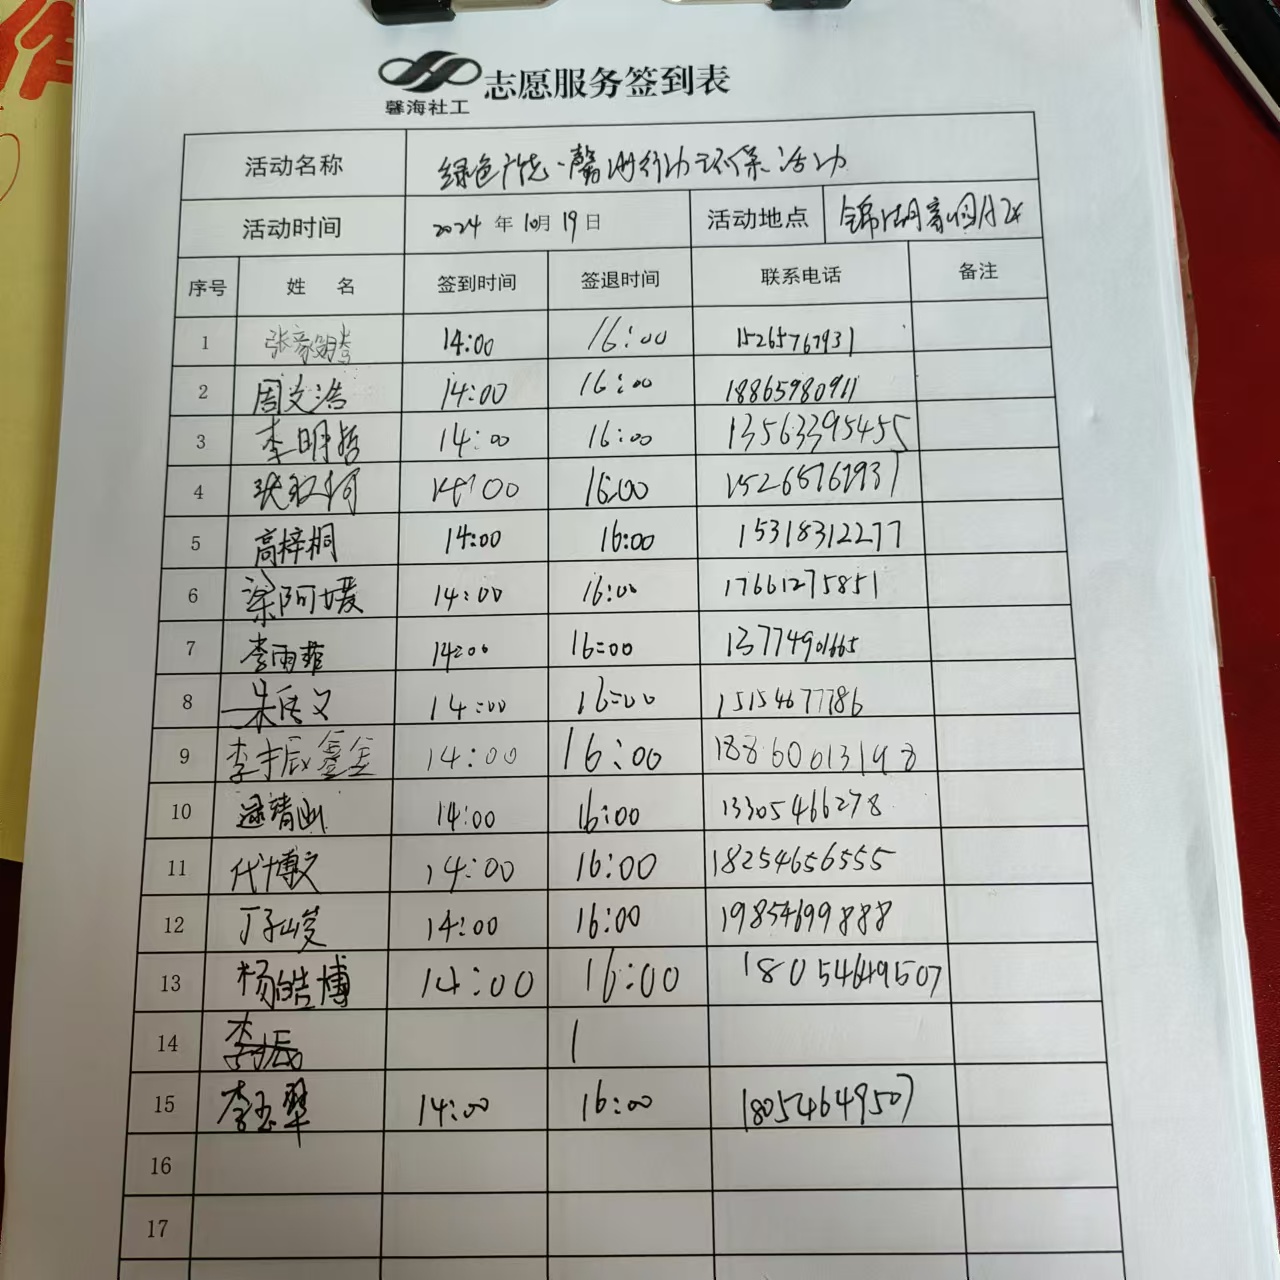 馨海社工 志愿服务签到表
活动名称 绿色 ·馨海行动环保活动
活动时间 2024年10月19日 活动地点
序号 姓名 签到时间 签退时间 联系电话 备注
1 14:00 16:00 15265767931
2 周文浩 14:00 16:00 18865980911
3 李明哲 14:00 16:00 13563395455
4 14:00 16:00
5 高梓桐 14:00 16:00 15318312277
6 梁阿媛 14:00 16:00 17661275851
7 李雨菲 14:00 16:00 13774901665
8 14:00 16:00 15154677786
9 李宇辰鑫 14:00 16:00 18860013198
10 逯靖函 14:00 16:00 13305466278
11 代博文 14:00 16:00 18254656555
12 丁子峻 14:00 16:00 19854699888
13 杨皓博 14:00 16:00 18054649507
14
15 李玉翠 14:00 16:00 18054649507
16
17